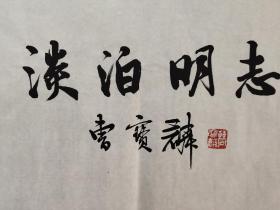 淡泊明志
曹寶麟